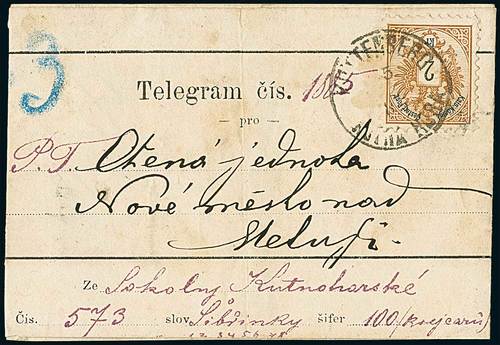 3
Telegram čís. 1885
— pro —
P.T. Ctená jednota
Nové město nad
Metují.
Ze Sokolny Kutnohorské
Čís. 573 slov Šibřinky šifer 100/krejcarů/
KUTTENBERG
KUTNÁ HORA